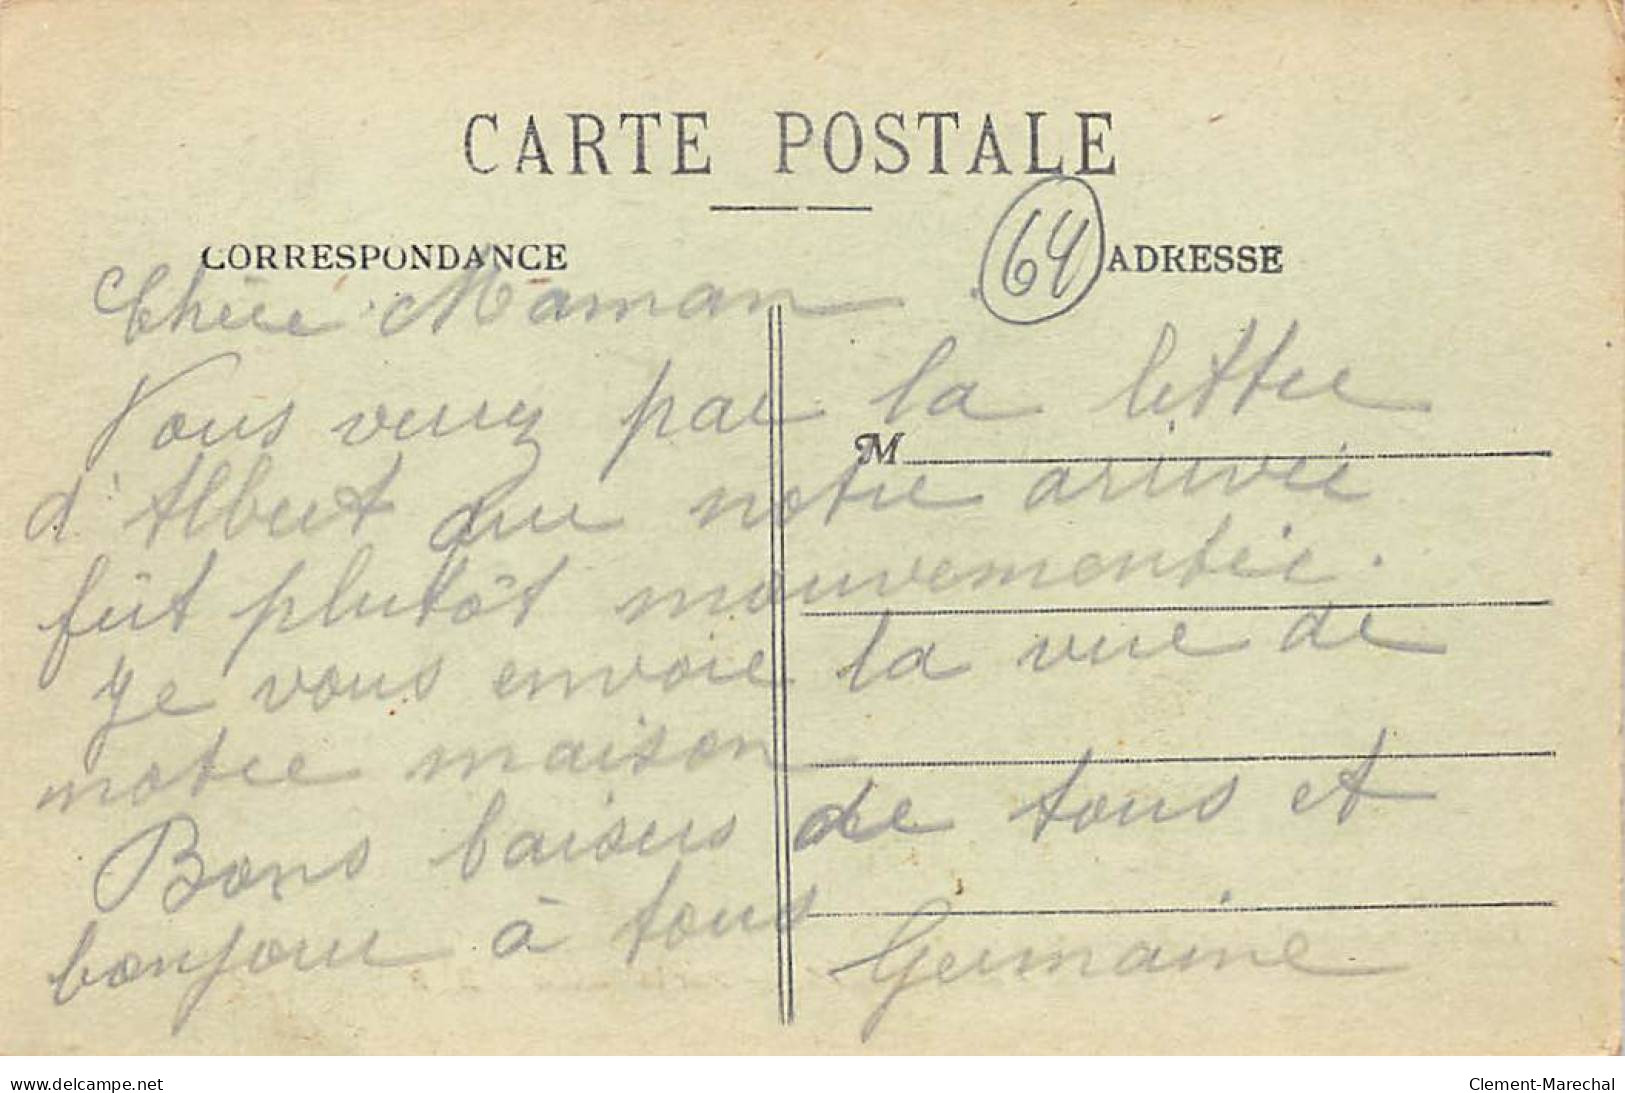 CARTE POSTALE
CORRESPONDANCE
64
ADRESSE
Chère Maman
Vous verrez par la lettre
M
d'Albert que notre arrivée
fût plutôt mouvementée.
Je vous envoie la vue de
notre maison
Bons baisers de tous et
bonjour à tous Germaine
www.delcampe.net
Clement-Marechal